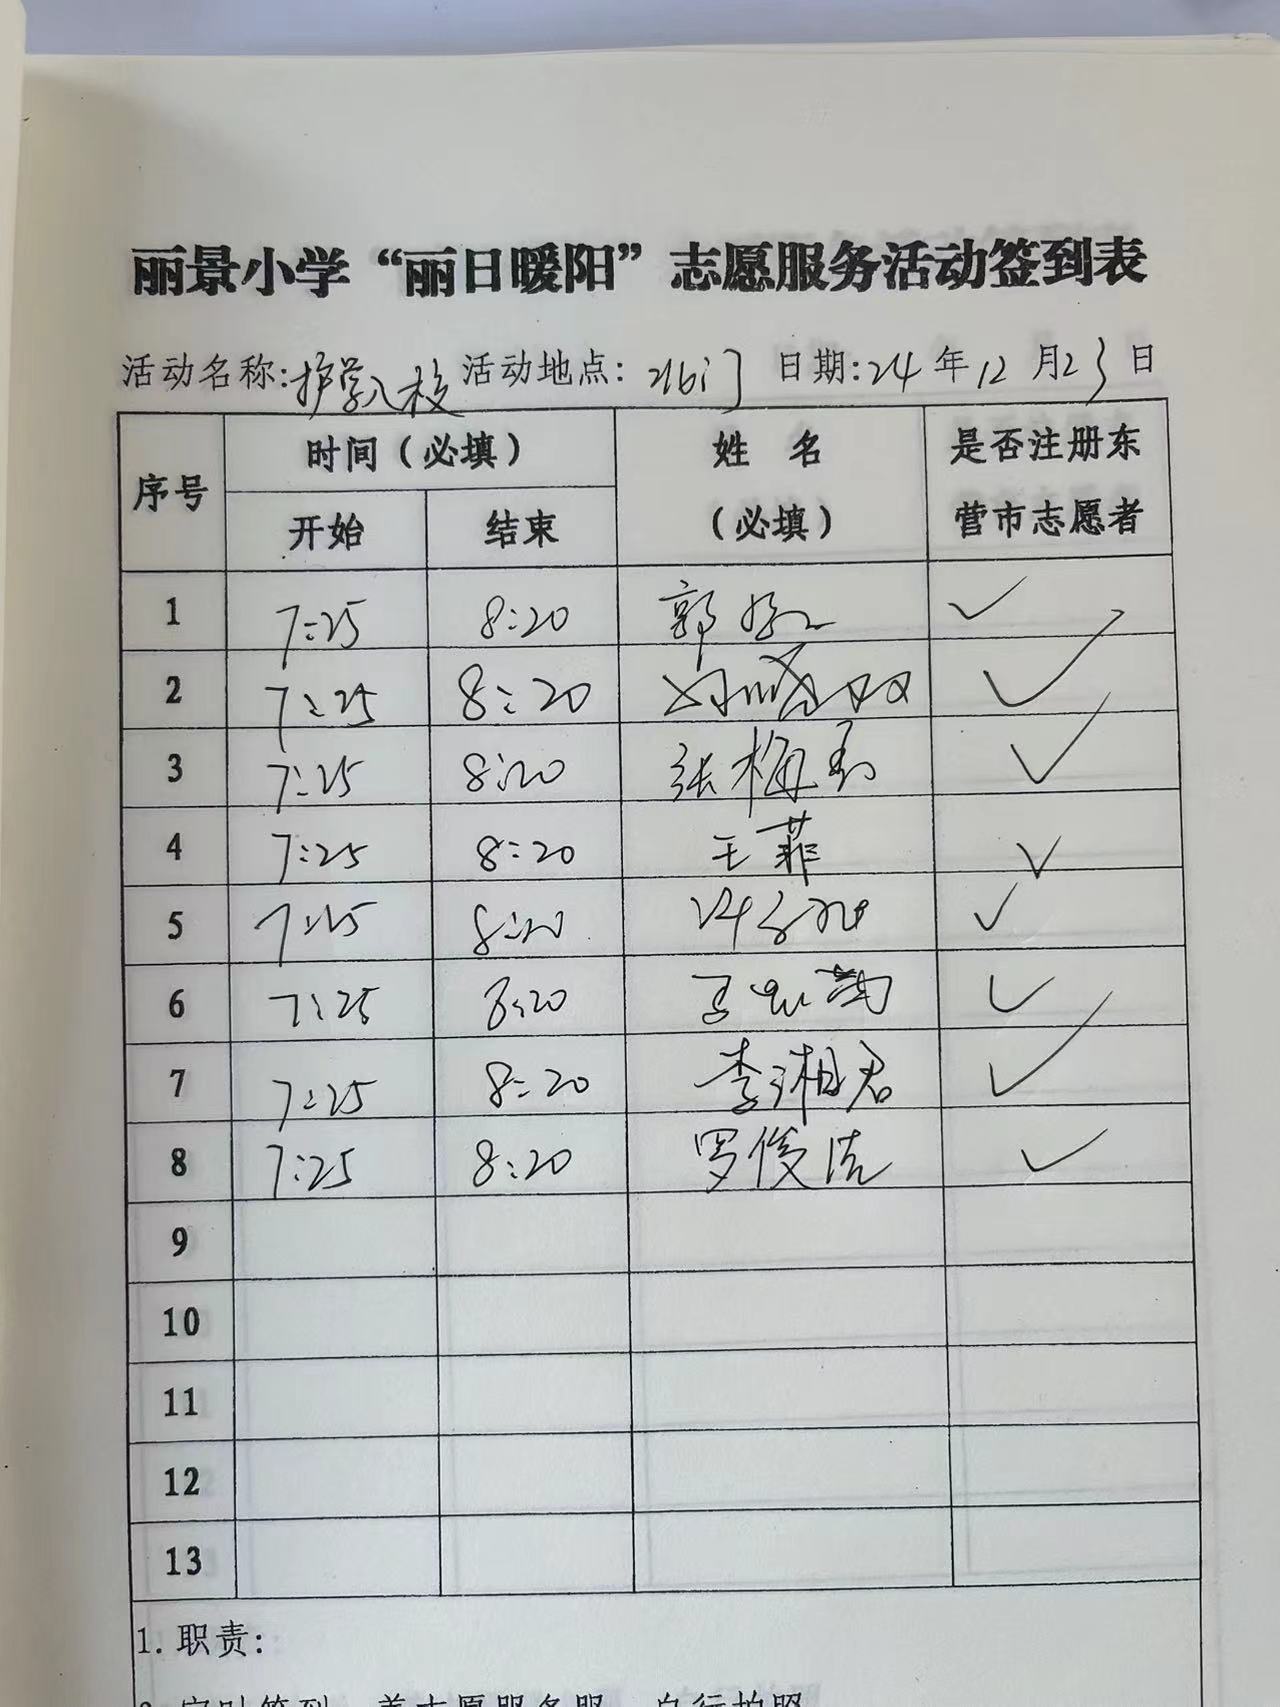 丽景小学“丽日暖阳”志愿服务活动签到表
活动名称:护学入校 活动地点: 北门 日期:24年12月23日
序号 时间(必填) 姓 名 (必填) 是否注册东营市志愿者
开始 结束
1 7:25 8:20 郭 ✓
2 7:25 8:20 ✓
3 7:25 8:20 张梅 ✓
4 7:25 8:20 王菲 ✓
5 7:25 8:20 ✓
6 7:25 8:20 ✓
7 7:25 8:20 李湘君 ✓
8 7:25 8:20 罗俊洁 ✓
9
10
11
12
13
1. 职责: